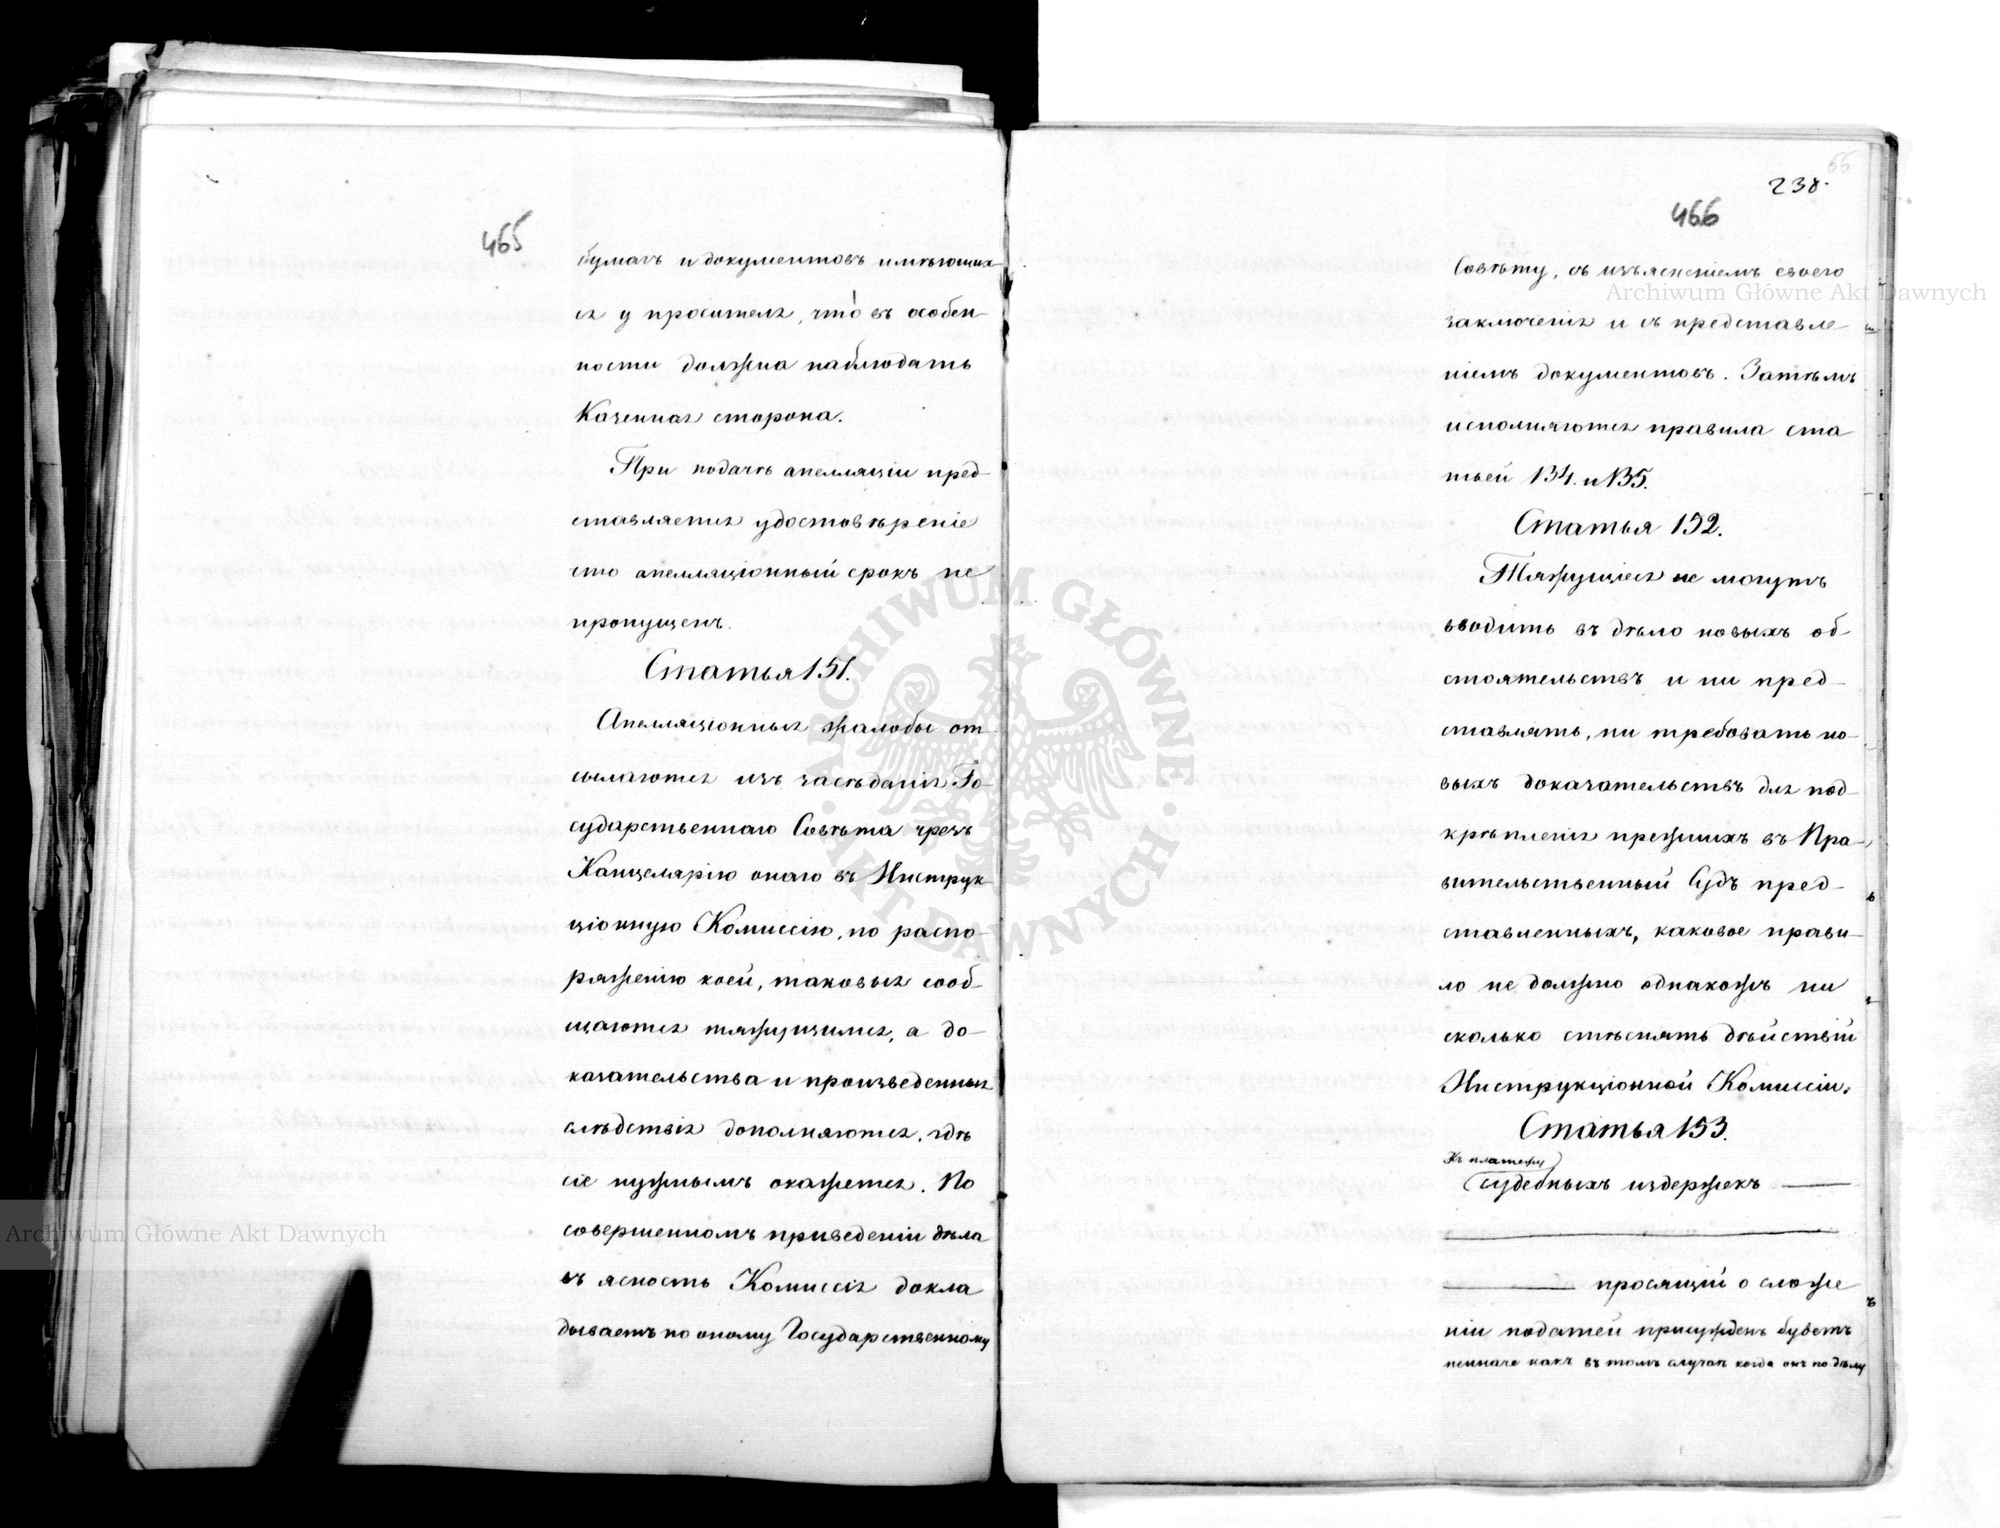 465
бумагъ и документовъ имѣющих-
ся у просителя, что́ въ особен-
ности должна наблюдать
Казенная сторона.
При подачѣ апелляціи пред-
ставляется удостовѣреніе
что апелляціонный срокъ не
пропущенъ.
Статья 151.
Апелляціонныя жалобы от-
сылаются изъ засѣданія Го-
сударственнаго Совѣта чрезъ
Канцелярію онаго въ Инструк-
ціонную Коммиссію, по распо-
ряженію коей, таковыя сооб-
щаются тяжущимся, а до-
казательства и произведенныя
слѣдствія дополняются, гдѣ
сіе нужнымъ окажется. По
совершенномъ приведеніи дѣла
въ ясность Коммиссія докла
дываетъ по оному Государственному
66
238.
466
Совѣту, съ изъясненіемъ своего
заключенія и съ представле-
ніемъ документовъ. Затѣмъ
исполняются правила ста
тьей 134. и 135.
Статья 152.
Тяжущіеся не могутъ
вводить въ дѣло новыхъ об-
стоятельствъ и ни пред-
ставлять, ни требовать но-
выхъ доказательствъ для под-
крѣпленія прежнихъ въ Пра-
вительственный Судъ пред-
ставленныхъ, каковое прави-
ло не должно однакожъ ни
сколько стѣснять дѣйствій
Инструкціонной Коммиссіи.
Статья 153.
Къ платежу
судебныхъ издержекъ
просящій о сложе
ніи податей присужденъ будетъ
неиначе какъ въ томъ случаѣ когда онъ по дѣлу
Archiwum Główne Akt Dawnych
Archiwum Główne Akt Dawnych
ARCHIWUM GŁÓWNE · AKT DAWNYCH ·